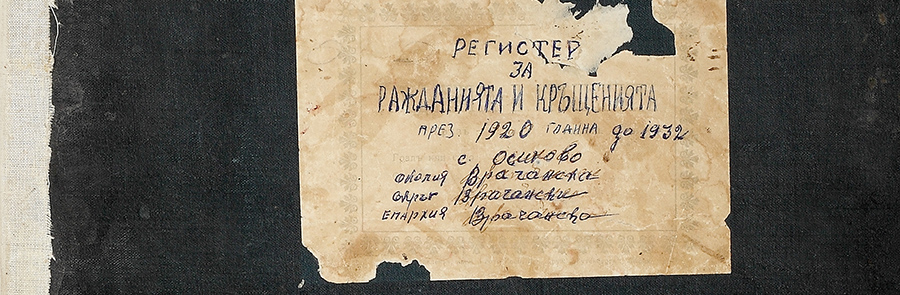 РЕГИСТЕР
ЗА
РАЖДАНИЯТА И КРЪЩЕНИЯТА
ПРЕЗ. 1920 ГОДИНА до 1932
с. Осиково
околия Врачанска
окръг Врачански
ЕПАРХИЯ Врачанска